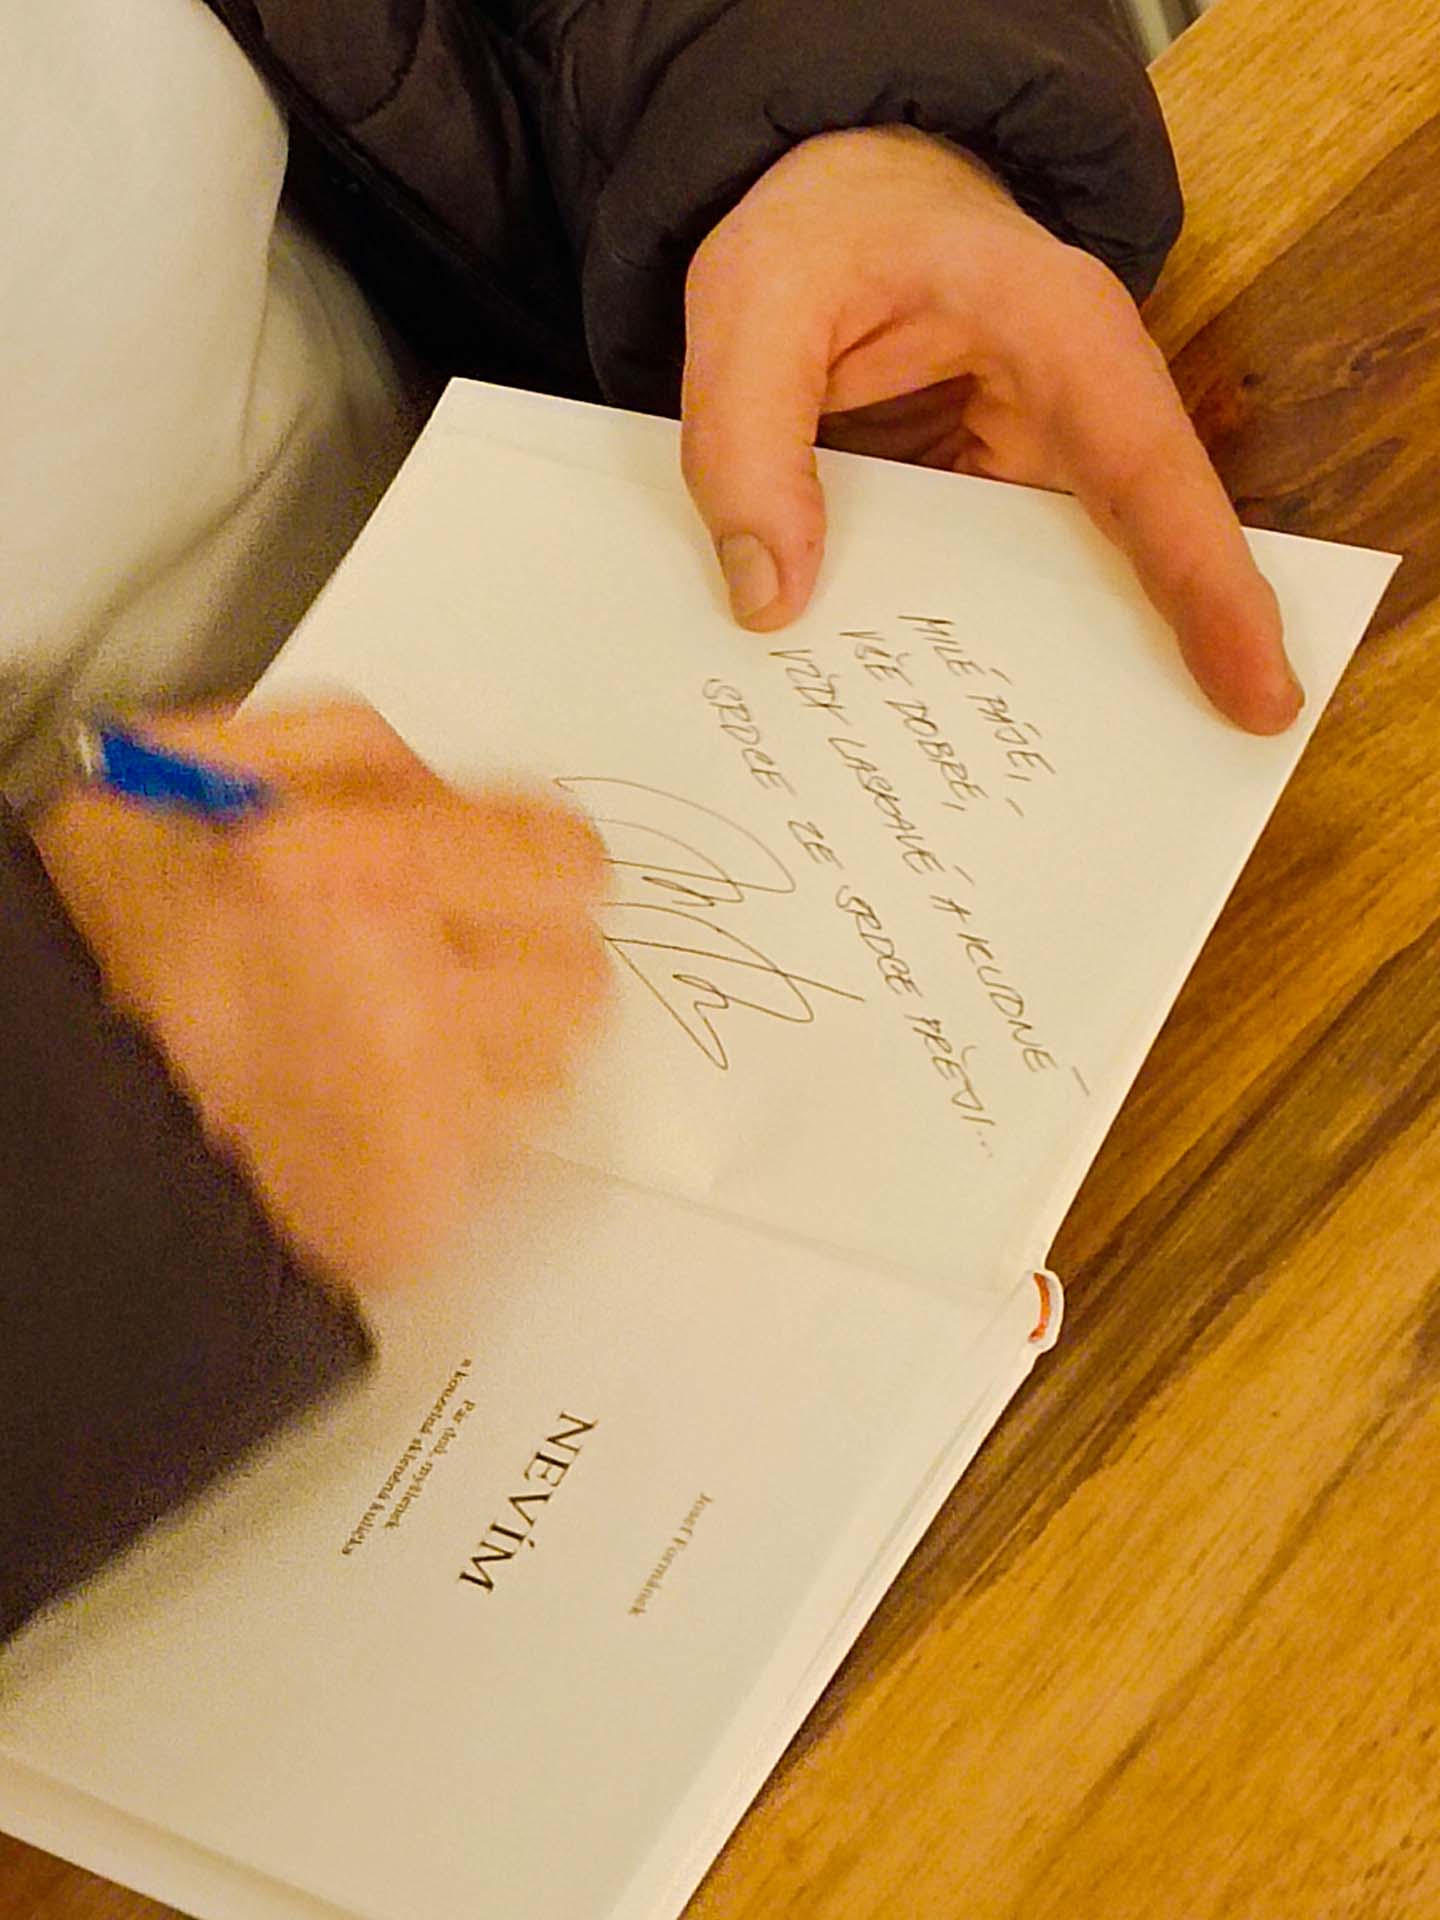 MILÉ PÁJE,
VŠE DOBRÉ,
VŽDY LASKAVÉ A KLIDNÉ
SRDCE ZE SRDCE PŘEJI...
Josef Formánek
NEVÍM
Pár dnů, myšlenek
a kouzelná skleněná kulička